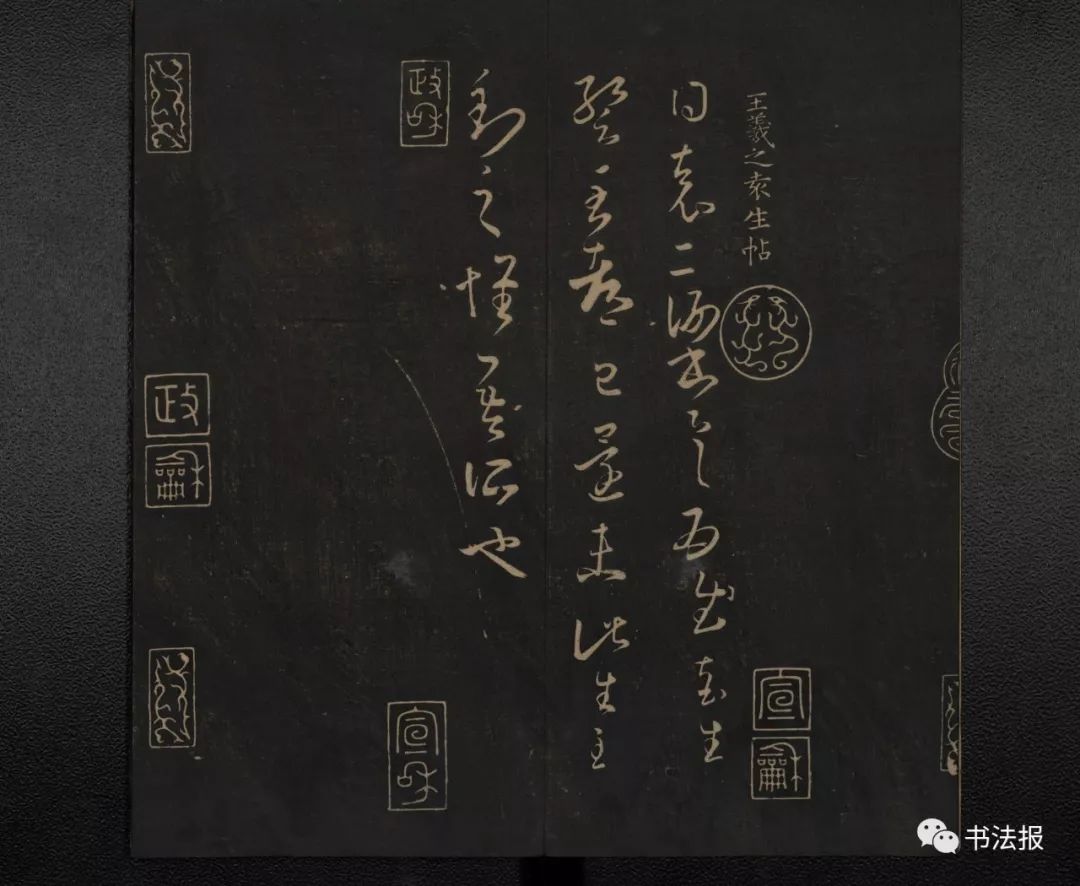 王羲之袁生帖
得袁二謝書具為慰袁生
蹔至都已還未此生至
到之懷吾所也
宣
龢
政和
宣和
政
龢
书法报